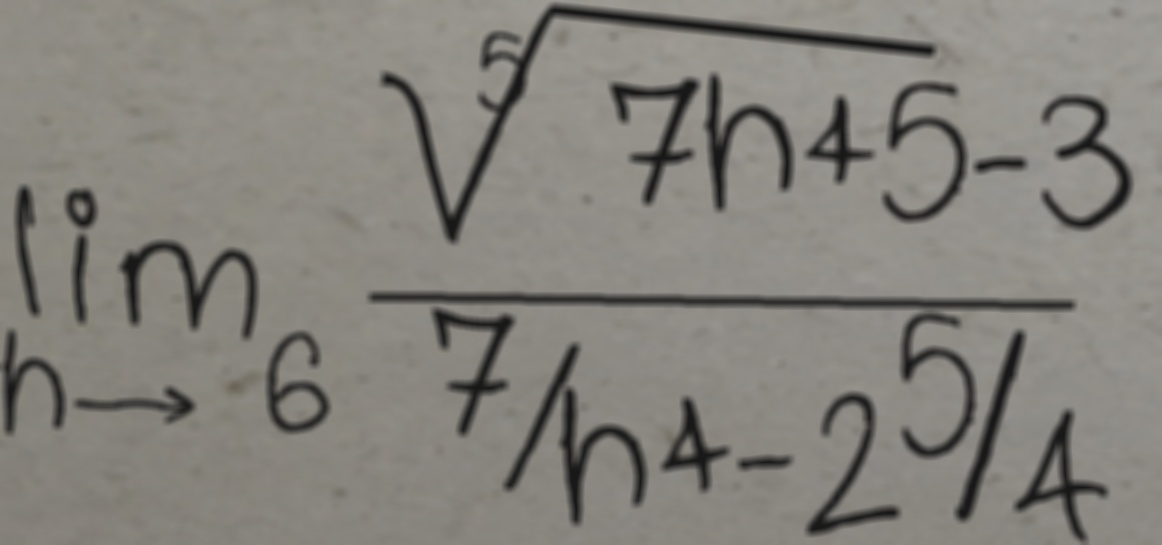 lim h→6 (⁵√(7h+5-3)) / (7/h4-2 5/4)